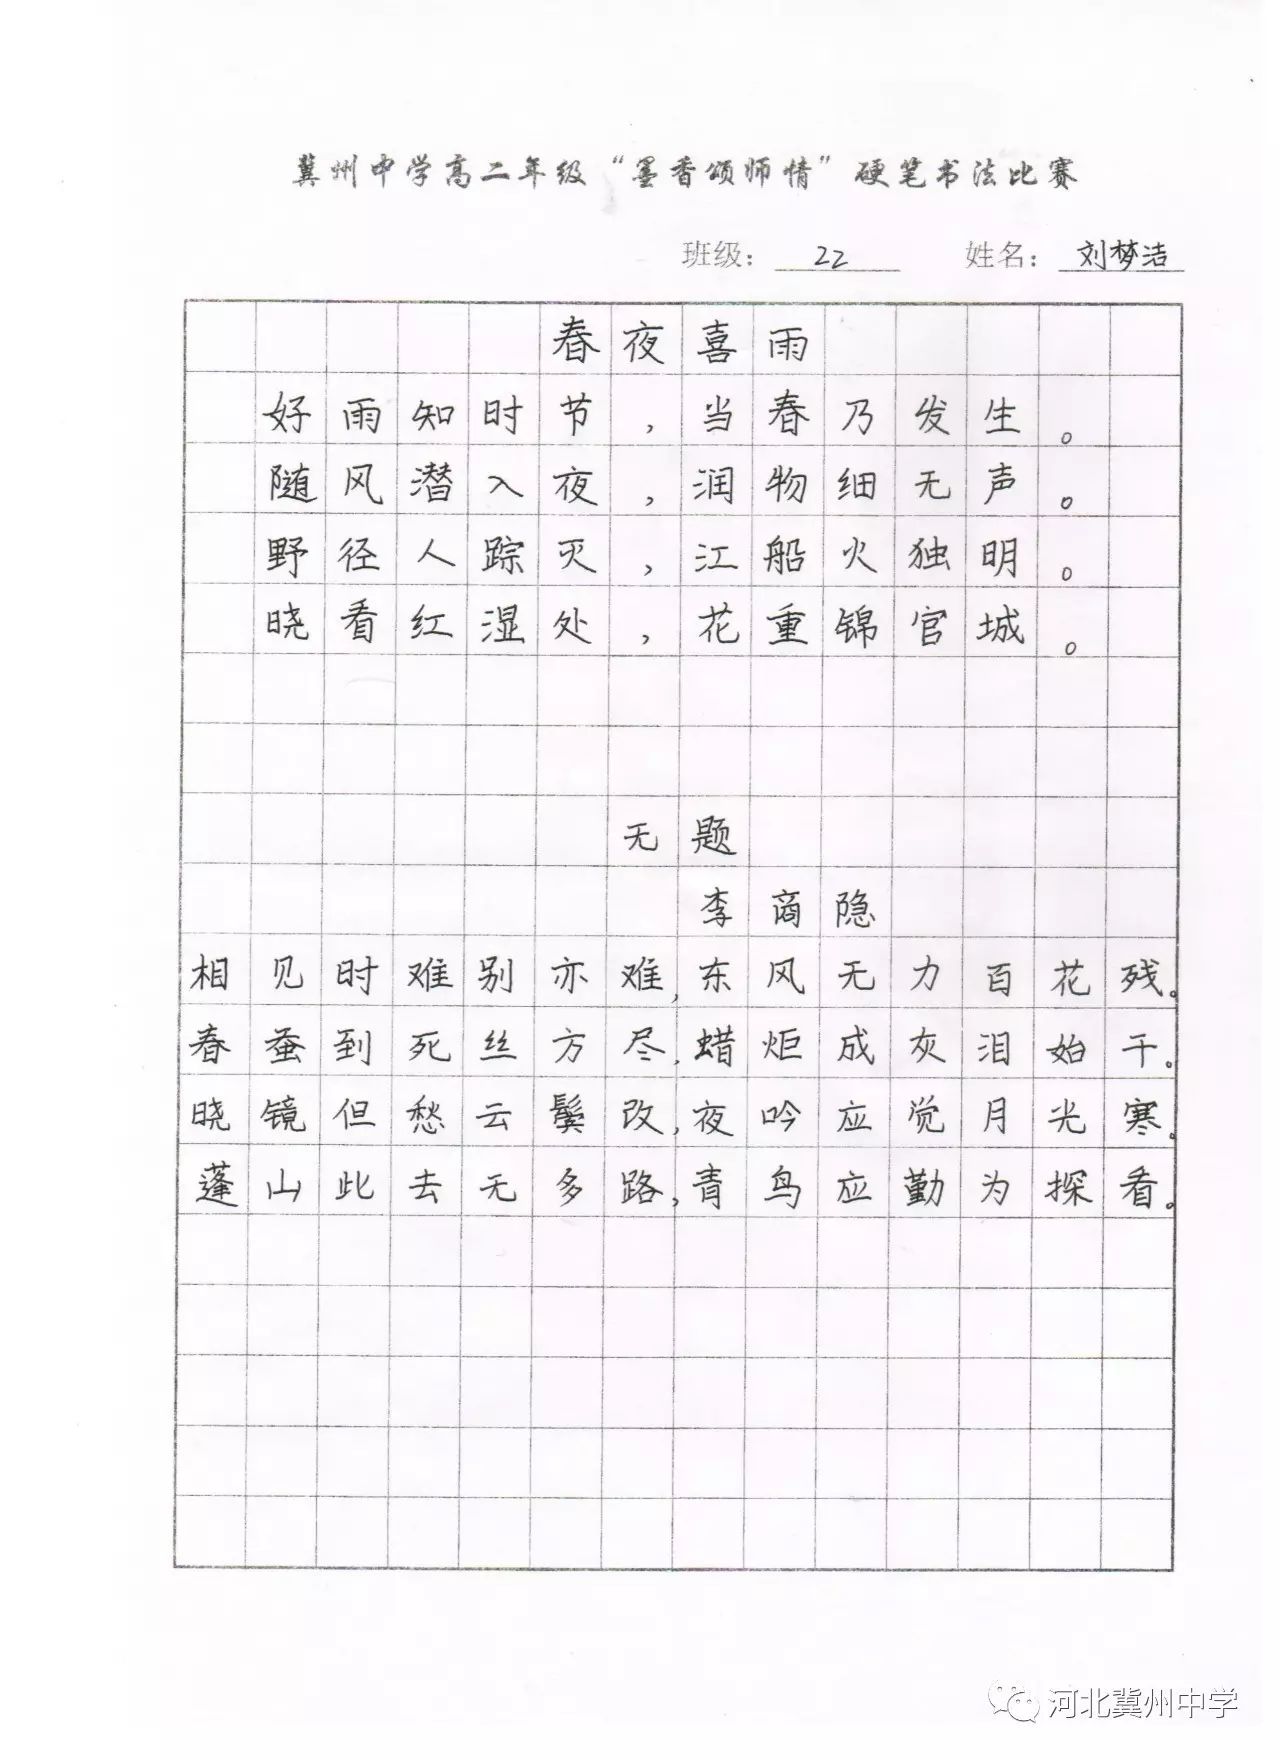 冀州中学高二年级“墨香颂师情”硬笔书法比赛
班级：22 姓名：刘梦洁
春夜喜雨
好雨知时节，当春乃发生。
随风潜入夜，润物细无声。
野径人踪灭，江船火独明。
晓看红湿处，花重锦官城。
无题
李商隐
相见时难别亦难，东风无力百花残。
春蚕到死丝方尽，蜡炬成灰泪始干。
晓镜但愁云鬓改，夜吟应觉月光寒。
蓬山此去无多路，青鸟应勤为探看。
河北冀州中学